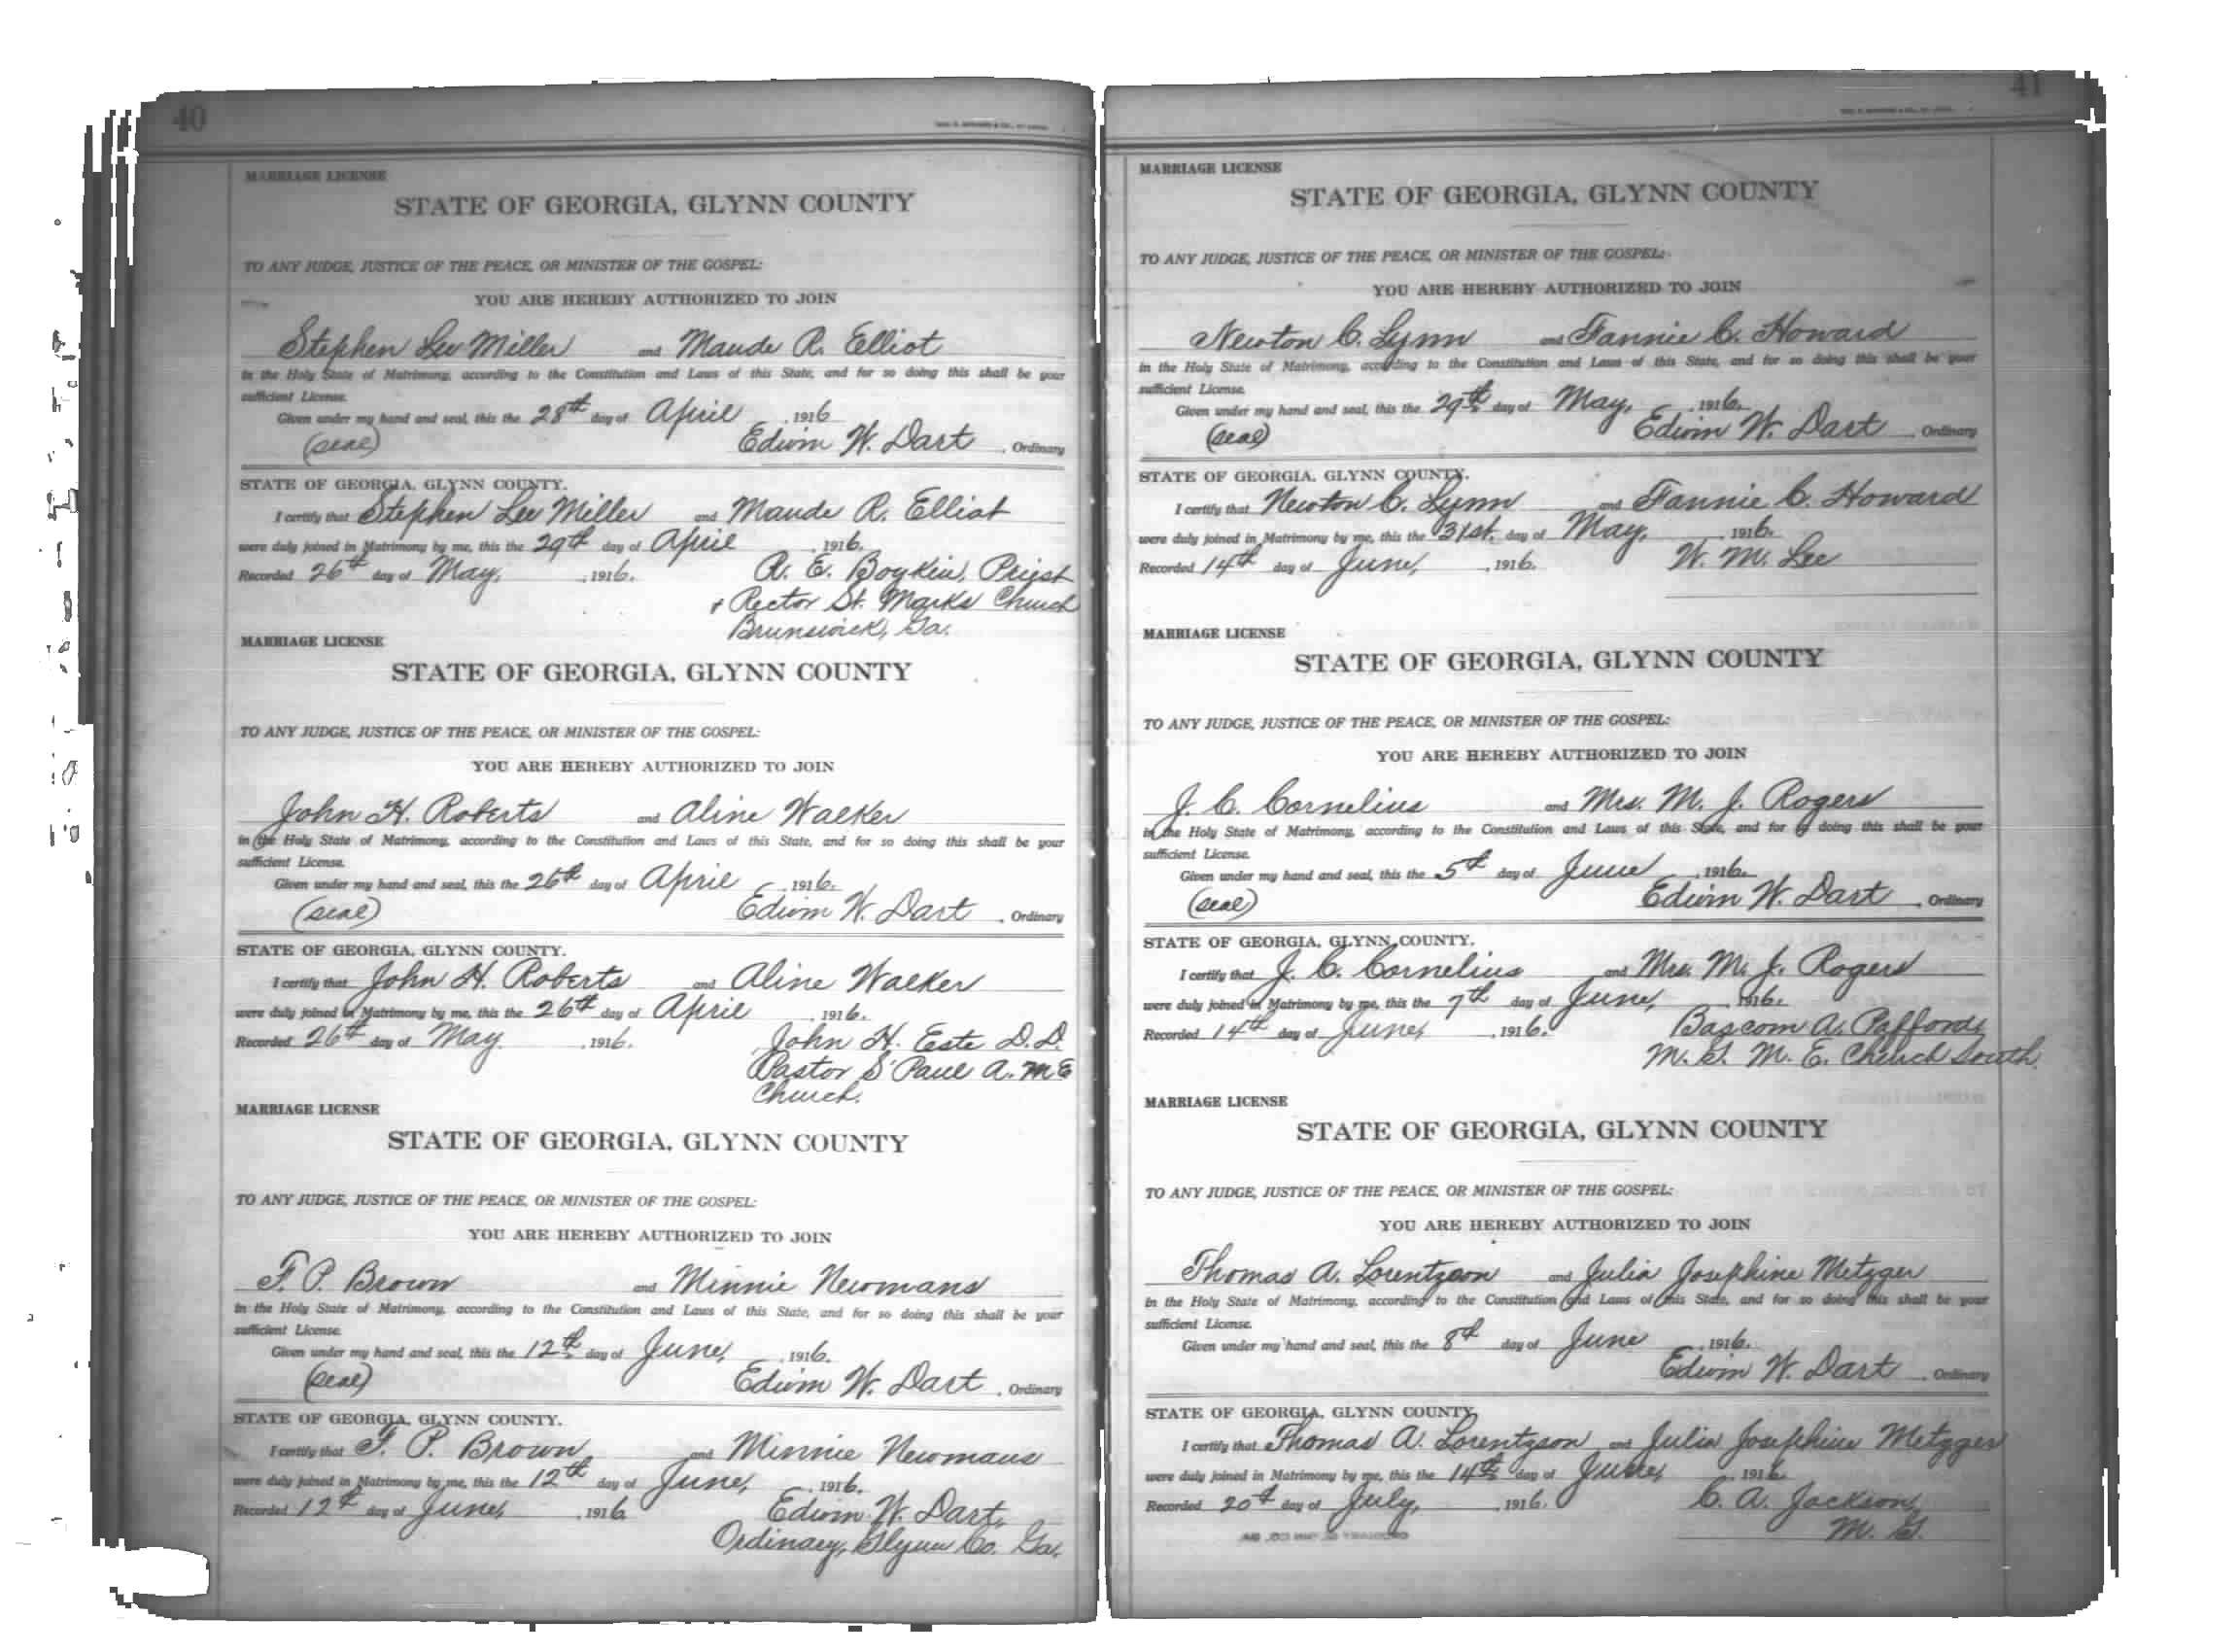 40
MARRIAGE LICENSE
STATE OF GEORGIA, GLYNN COUNTY
TO ANY JUDGE, JUSTICE OF THE PEACE, OR MINISTER OF THE GOSPEL:
YOU ARE HEREBY AUTHORIZED TO JOIN
Stephen Lee Miller and Maude R. Elliot
in the Holy State of Matrimony, according to the Constitution and Laws of this State, and for so doing this shall be your
sufficient License.
Given under my hand and seal, this the 28th day of April , 1916
(seal) Edwin W. Dart , Ordinary
STATE OF GEORGIA, GLYNN COUNTY.
I certify that Stephen Lee Miller and Maude R. Elliot
were duly joined in Matrimony by me, this the 29th day of April , 1916.
Recorded 26th day of May, , 1916. R. E. Boykin, Priest
+ Rector St. Marks Church
Brunswick, Ga.
MARRIAGE LICENSE
STATE OF GEORGIA, GLYNN COUNTY
TO ANY JUDGE, JUSTICE OF THE PEACE, OR MINISTER OF THE GOSPEL:
YOU ARE HEREBY AUTHORIZED TO JOIN
John H. Roberts and Aline Walker
in the Holy State of Matrimony, according to the Constitution and Laws of this State, and for so doing this shall be your
sufficient License.
Given under my hand and seal, this the 26th day of April , 1916.
(seal) Edwin W. Dart , Ordinary
STATE OF GEORGIA, GLYNN COUNTY.
I certify that John H. Roberts and Aline Walker
were duly joined in Matrimony by me, this the 26th day of April , 1916.
Recorded 26th day of May , 1916. John H. Este D.D.
Pastor S' Paul A. M E
Church.
MARRIAGE LICENSE
STATE OF GEORGIA, GLYNN COUNTY
TO ANY JUDGE, JUSTICE OF THE PEACE, OR MINISTER OF THE GOSPEL:
YOU ARE HEREBY AUTHORIZED TO JOIN
F. P. Brown and Minnie Newmans
in the Holy State of Matrimony, according to the Constitution and Laws of this State, and for so doing this shall be your
sufficient License.
Given under my hand and seal, this the 12th day of June, , 1916.
(seal) Edwin W. Dart , Ordinary
STATE OF GEORGIA, GLYNN COUNTY.
I certify that F. P. Brown and Minnie Newmans
were duly joined in Matrimony by me, this the 12th day of June, , 1916.
Recorded 12th day of June, , 1916 Edwin W. Dart,
Ordinary, Glynn Co. Ga.
41
MARRIAGE LICENSE
STATE OF GEORGIA, GLYNN COUNTY
TO ANY JUDGE, JUSTICE OF THE PEACE, OR MINISTER OF THE GOSPEL:
YOU ARE HEREBY AUTHORIZED TO JOIN
Newton C. Lynn and Fannie C. Howard
in the Holy State of Matrimony, according to the Constitution and Laws of this State, and for so doing this shall be your
sufficient License.
Given under my hand and seal, this the 29th day of May, , 1916.
(seal) Edwin W. Dart , Ordinary
STATE OF GEORGIA, GLYNN COUNTY.
I certify that Newton C. Lynn and Fannie C. Howard
were duly joined in Matrimony by me, this the 31st. day of May, , 1916.
Recorded 14th day of June, , 1916. W. M. Lee
MARRIAGE LICENSE
STATE OF GEORGIA, GLYNN COUNTY
TO ANY JUDGE, JUSTICE OF THE PEACE, OR MINISTER OF THE GOSPEL:
YOU ARE HEREBY AUTHORIZED TO JOIN
J. C. Cornelius and Mrs. M. J. Rogers
in the Holy State of Matrimony, according to the Constitution and Laws of this State, and for so doing this shall be your
sufficient License.
Given under my hand and seal, this the 5th day of June , 1916.
(seal) Edwin W. Dart , Ordinary
STATE OF GEORGIA, GLYNN COUNTY.
I certify that J. C. Cornelius and Mrs. M. J. Rogers
were duly joined in Matrimony by me, this the 7th day of June, , 1916.
Recorded 14th day of June, , 1916. Bascom A. Pafford,
M. G. M. E. Church South.
MARRIAGE LICENSE
STATE OF GEORGIA, GLYNN COUNTY
TO ANY JUDGE, JUSTICE OF THE PEACE, OR MINISTER OF THE GOSPEL:
YOU ARE HEREBY AUTHORIZED TO JOIN
Thomas A. Lorentzson and Julia Josephine Metzger
in the Holy State of Matrimony, according to the Constitution and Laws of this State, and for so doing this shall be your
sufficient License.
Given under my hand and seal, this the 8th day of June , 1916.
Edwin W. Dart , Ordinary
STATE OF GEORGIA, GLYNN COUNTY
I certify that Thomas A. Lorentzson and Julia Josephine Metzger
were duly joined in Matrimony by me, this the 14th day of June, , 1916.
Recorded 20th day of July, , 1916. C. A. Jackson,
M. G.